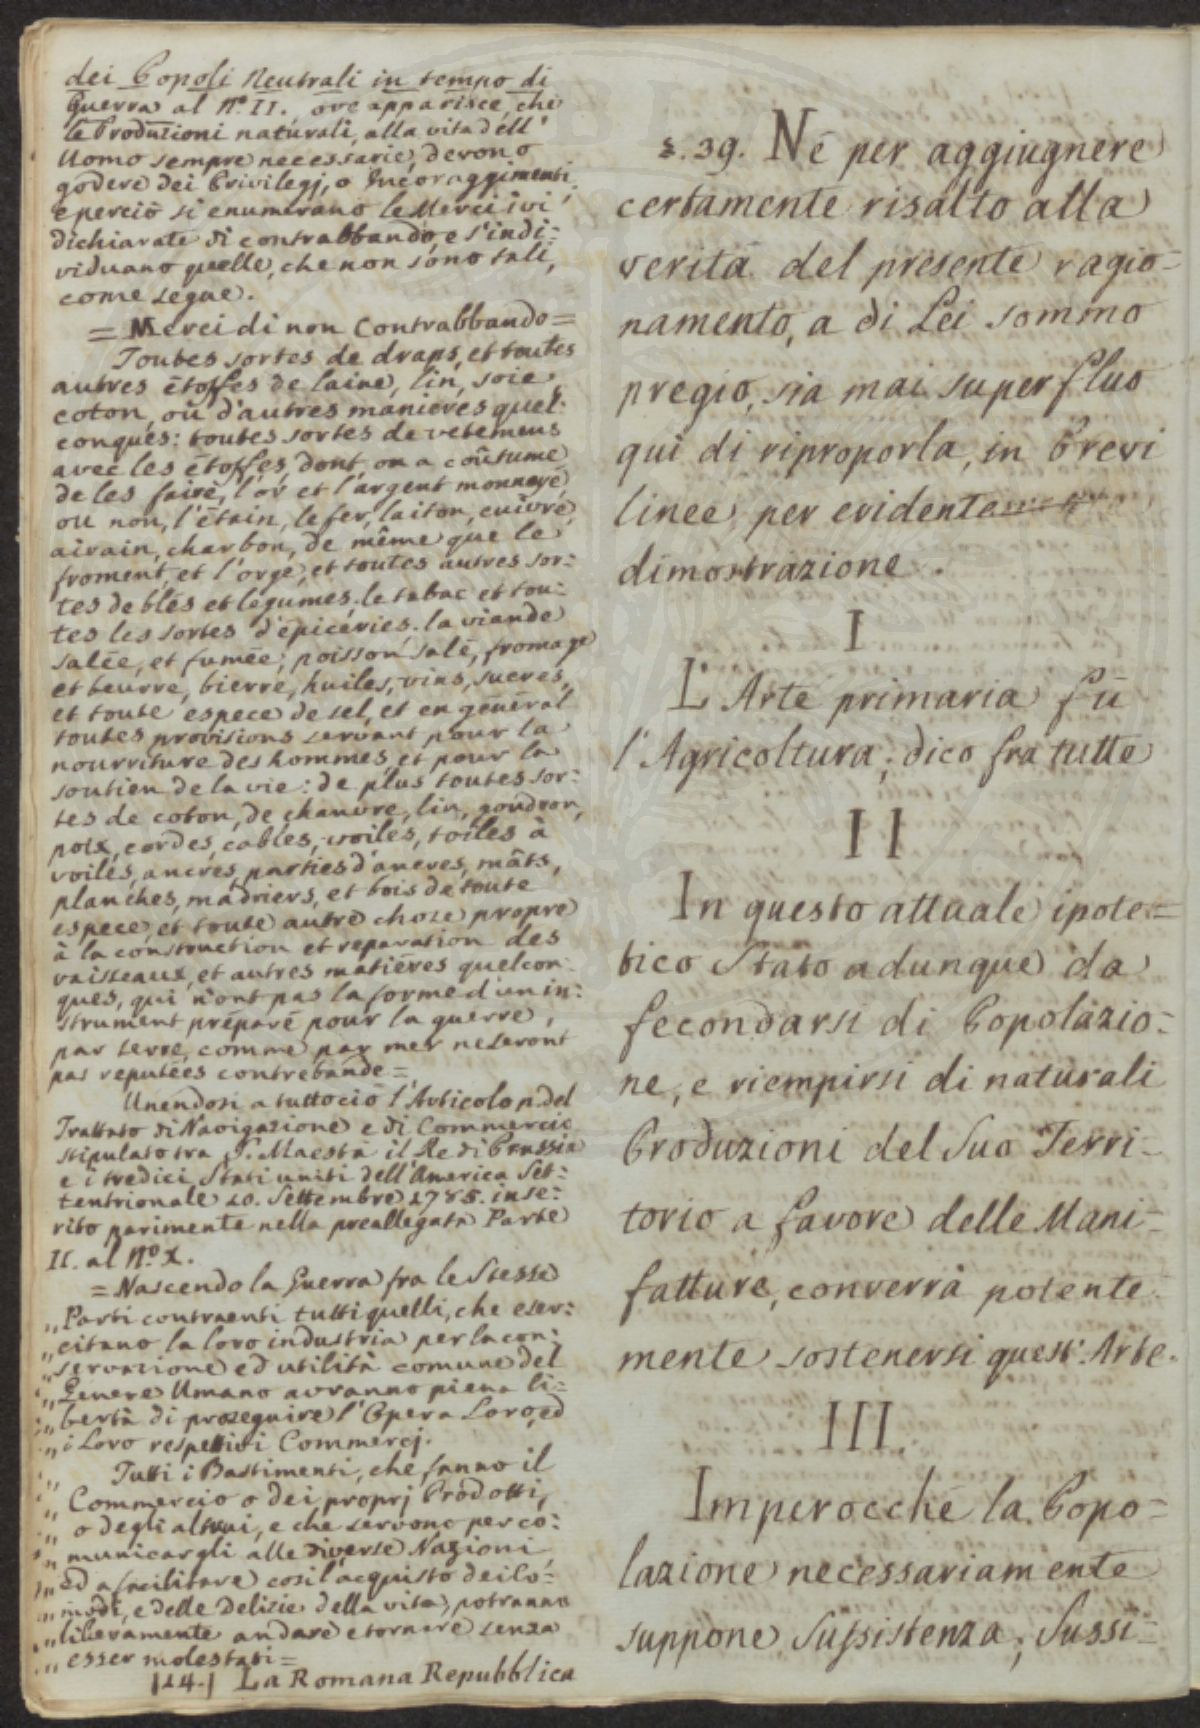 dei Popoli Neutrali in tempo di
Guerra al N.º II. ove apparisce, che
le Produzioni naturali, alla vita dell'
Uomo sempre necessarie, devono
godere dei Privilegj, o Incoraggimenti,
e perciò si enumerano le Merci ivi
dichiarate di contrabbando, e s'indi:
viduano quelle, che non sono tali,
come segue.
= Merci di non Contrabbando =
Toutes sortes de draps, et toutes
autres étoffes de laine, lin, soie,
coton, où d'autres manieres quel:
conques: toutes sortes de vetemens
avec les étoffes, dont, on a coûtume
de les faire, l'or et l'argent monnayé
ou non, l'étain, le fer, laiton, cuivre,
airain, charbon, de même que le
froment, et l'orge, et toutes autres sor:
tes de blés et legumes. le tabac et tou:
tes les sortes d'épiceries. la viande
salée, et fumée; poisson salé, fromage
et beurre, bierre, huiles, vins, sucres,
et toute espece de sel, et en général
toutes provisions servant pour la
nourriture des hommes, et pour la
soutien de la vie: de plus toutes sor:
tes de coton, de chanvre, lin, goudron,
poix, cordes, cables, voiles, toiles à
voiles, ancres, parties d'ancres, mâts,
planches, madriers, et bois de toute
espece, et toute autre chose propre
à la construction et reparation des
vaisseaux, et autres matiéres quelcon:
ques, qui n'ont pas la forme d'un in:
strument préparé pour la guerre,
par terre, comme par mer ne seront
pas reputées contrebande =
Unendosi a tuttociò l'Articolo p. del
Trattato di Navigazione e di Commercio
stipulato tra S. Maestà il Re di Prussia
e i tredici Stati uniti dell'America Set:
tentrionale 10. Settembre 1785. inse:
rito parimente nella preallegata Parte
II. al N.º X.
= Nascendo la Guerra fra le Stesse
„ Parti contraenti tutti quelli, che eser:
„ citano la loro industria per la con:
„ servazione ed utilità comune del
„ Genere Umano avranno piena li:
„ bertà di proseguire l'Opera Loro, ed
„ i Loro respettivi Commercj.
„ Tutti i Bastimenti, che fanno il
„ Commercio o dei proprj Prodotti,
„ o degli altrui, e che servono per co:
„ municargli alle diverse Nazioni,
„ ed a facilitare così l'acquisto dei Co:
„ modi, e delle Delizie della vita, potranno
„ liberamente andare e tornare senza
„ esser molestati =
|14.| La Romana Repubblica
§. 39. Né per aggiugnere
certamente risalto alla
verità del presente ragio=
namento, a di Lei sommo
pregio, sia mai superfluo
qui di riproporla, in brevi
linee, per evidente
dimostrazione.
I
L'Arte primaria fù
l'Agricoltura; dico fra tutte
II
In questo attuale ipote=
tico Stato adunque da
fecondarsi di Popolazio=
ne, e riempirsi di naturali
Produzioni del Suo Terri=
torio a favore delle Mani=
fatture, converrà potente=
mente sostenersi quest'Arte.
III.
Imperocché la Popo=
lazione necessariamente
suppone Sussistenza; Sussi=